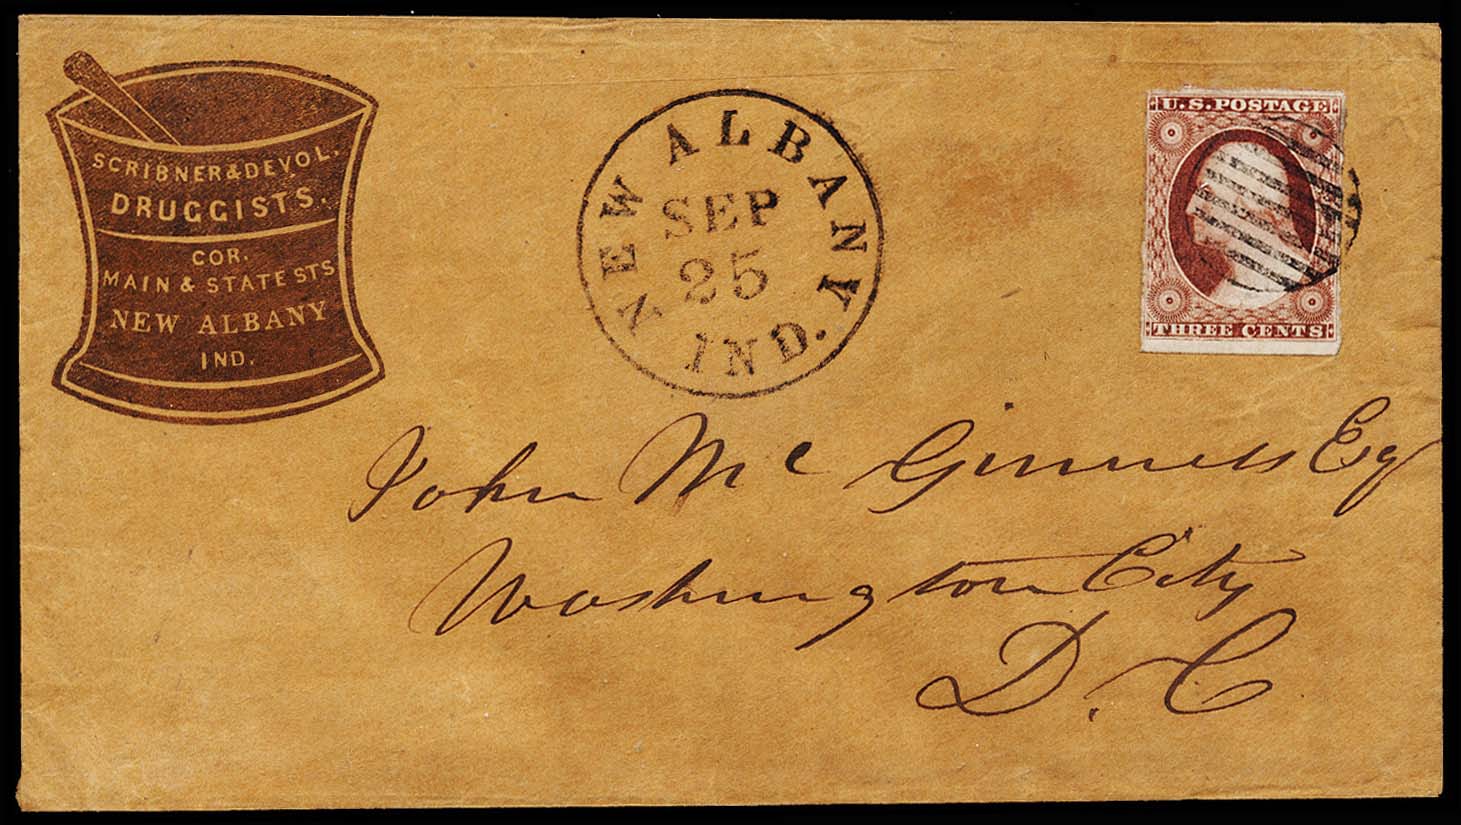 SCRIBNER & DEVOL.
DRUGGISTS.
COR.
MAIN & STATE STS
NEW ALBANY
IND.
NEW ALBANY
IND.
SEP
25
U.S. POSTAGE
THREE CENTS
John Mc Ginness Esq
Washington City
D. C